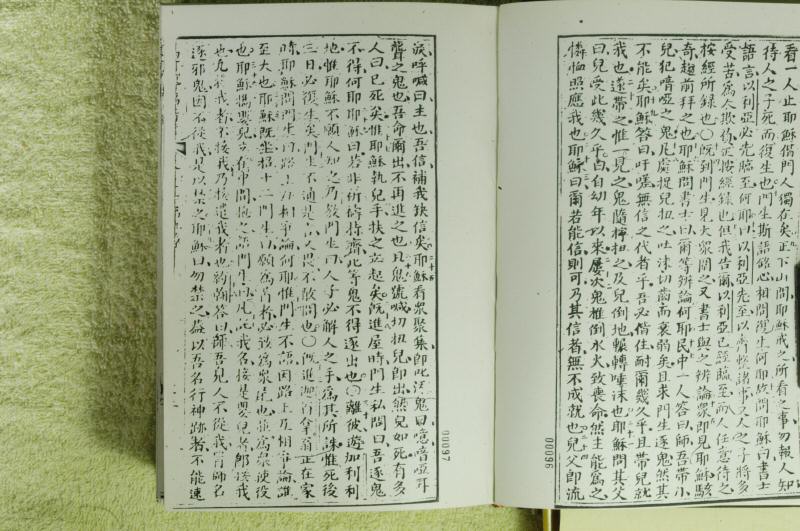 看一人止耶穌偕門人獨在矣正下山間耶穌戒之所看之事勿報人知
待人之子死而復生也門生斯語銘心相問復生何耶故問耶穌曰書士
語言以利亞必先臨至何耶曰以利亞先至以齊整諸事又人之子將多
受苦爲人欺侮正按經錄也但我告爾以利亞已經臨至而人任意待之
按經所錄也〇既到門生見大衆圍之又書士與之辨論衆即見耶穌駭
奇趨前拜之也耶穌問書士曰爾等辨論何耶民中一人答曰師吾帶小
兒犯喑啞之鬼凡處捉兒扭之吐沫切齒而衰弱矣且求門生逐鬼然其
不能矣耶穌答曰吁嗟無信之代者乎吾必偕住耐爾幾久乎且帶兒就
我也遂帶之惟一見之鬼隨拧扭之及兒倒地輾轉唾沫也耶穌問其父
曰兒受此幾久乎曰自幼年以來屢次鬼推倒水火致喪命然主能爲之
憐恤照應我也耶穌曰爾若能信則可乃其信者無不成就也兒父即流
00096
淚呼喊曰主也吾信補我缺信矣耶穌看衆聚集即叱污鬼曰喑啞耳
聾之鬼也吾命爾出不再進之也且鬼號喊切扭兒即出然兒如死有多
人曰已死矣惟耶穌執兒手扶之立起矣既進屋時門生私問曰吾逐鬼
不得何耶耶穌曰若非祈禱持齋此等鬼不得逐出也〇離彼遊加利利
地惟耶穌不願人知之乃教門生曰人子必解人之手爲其所誅惟死後
三日必復生矣門生不通是言人畏不敢問也〇既進迦百拿翁正在家
時耶穌問門生曰路上爾相爭論何耶惟門生不語因路上互相爭論誰
至大也耶穌既坐招十二門生曰願爲首者必該爲衆後也並爲衆使役
也耶穌攜嬰兒立在中間抱之語門生曰凡托我名接是嬰兒者即接我
也凡接我者不接我乃接遣我者也約翰答曰師吾見人不從我冐師名
逐邪鬼因不從我是以禁之耶穌曰勿禁之蓋以吾名行神跡者不能速
00097